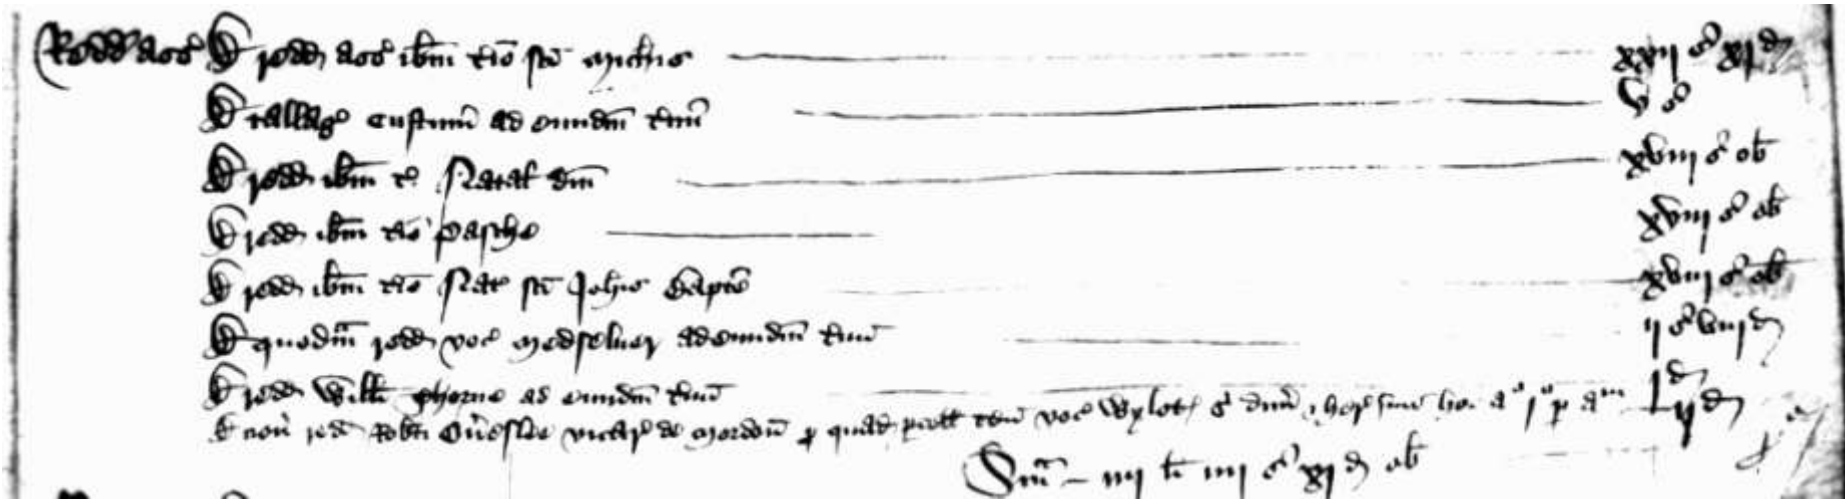 Redd' ass' D redd' ass' ibm t'io sci Mich'is xxvij s' xj d'
D tallag' custum' ad eundm t'mi' v s'
D redd' ibm t' Natal' dni xviij s' ob'
D redd' ibm t'io Pasche xviij s' ob'
D redd' ibm t'io Nat' sci Joh'is Bapt'e xviij s' ob'
D quodm redd' voc' Medselver ad eundm t'mi' ij s' viij d'
D redd' Willi ad eundm t'mi' j d'
D nou' redd' Robti vicar' de Mordon' p' quad' p'cell' voc' Wylot s' hoc a° j° p' a m ij d'
Sm' iiij li' iiij s' xj d' ob'